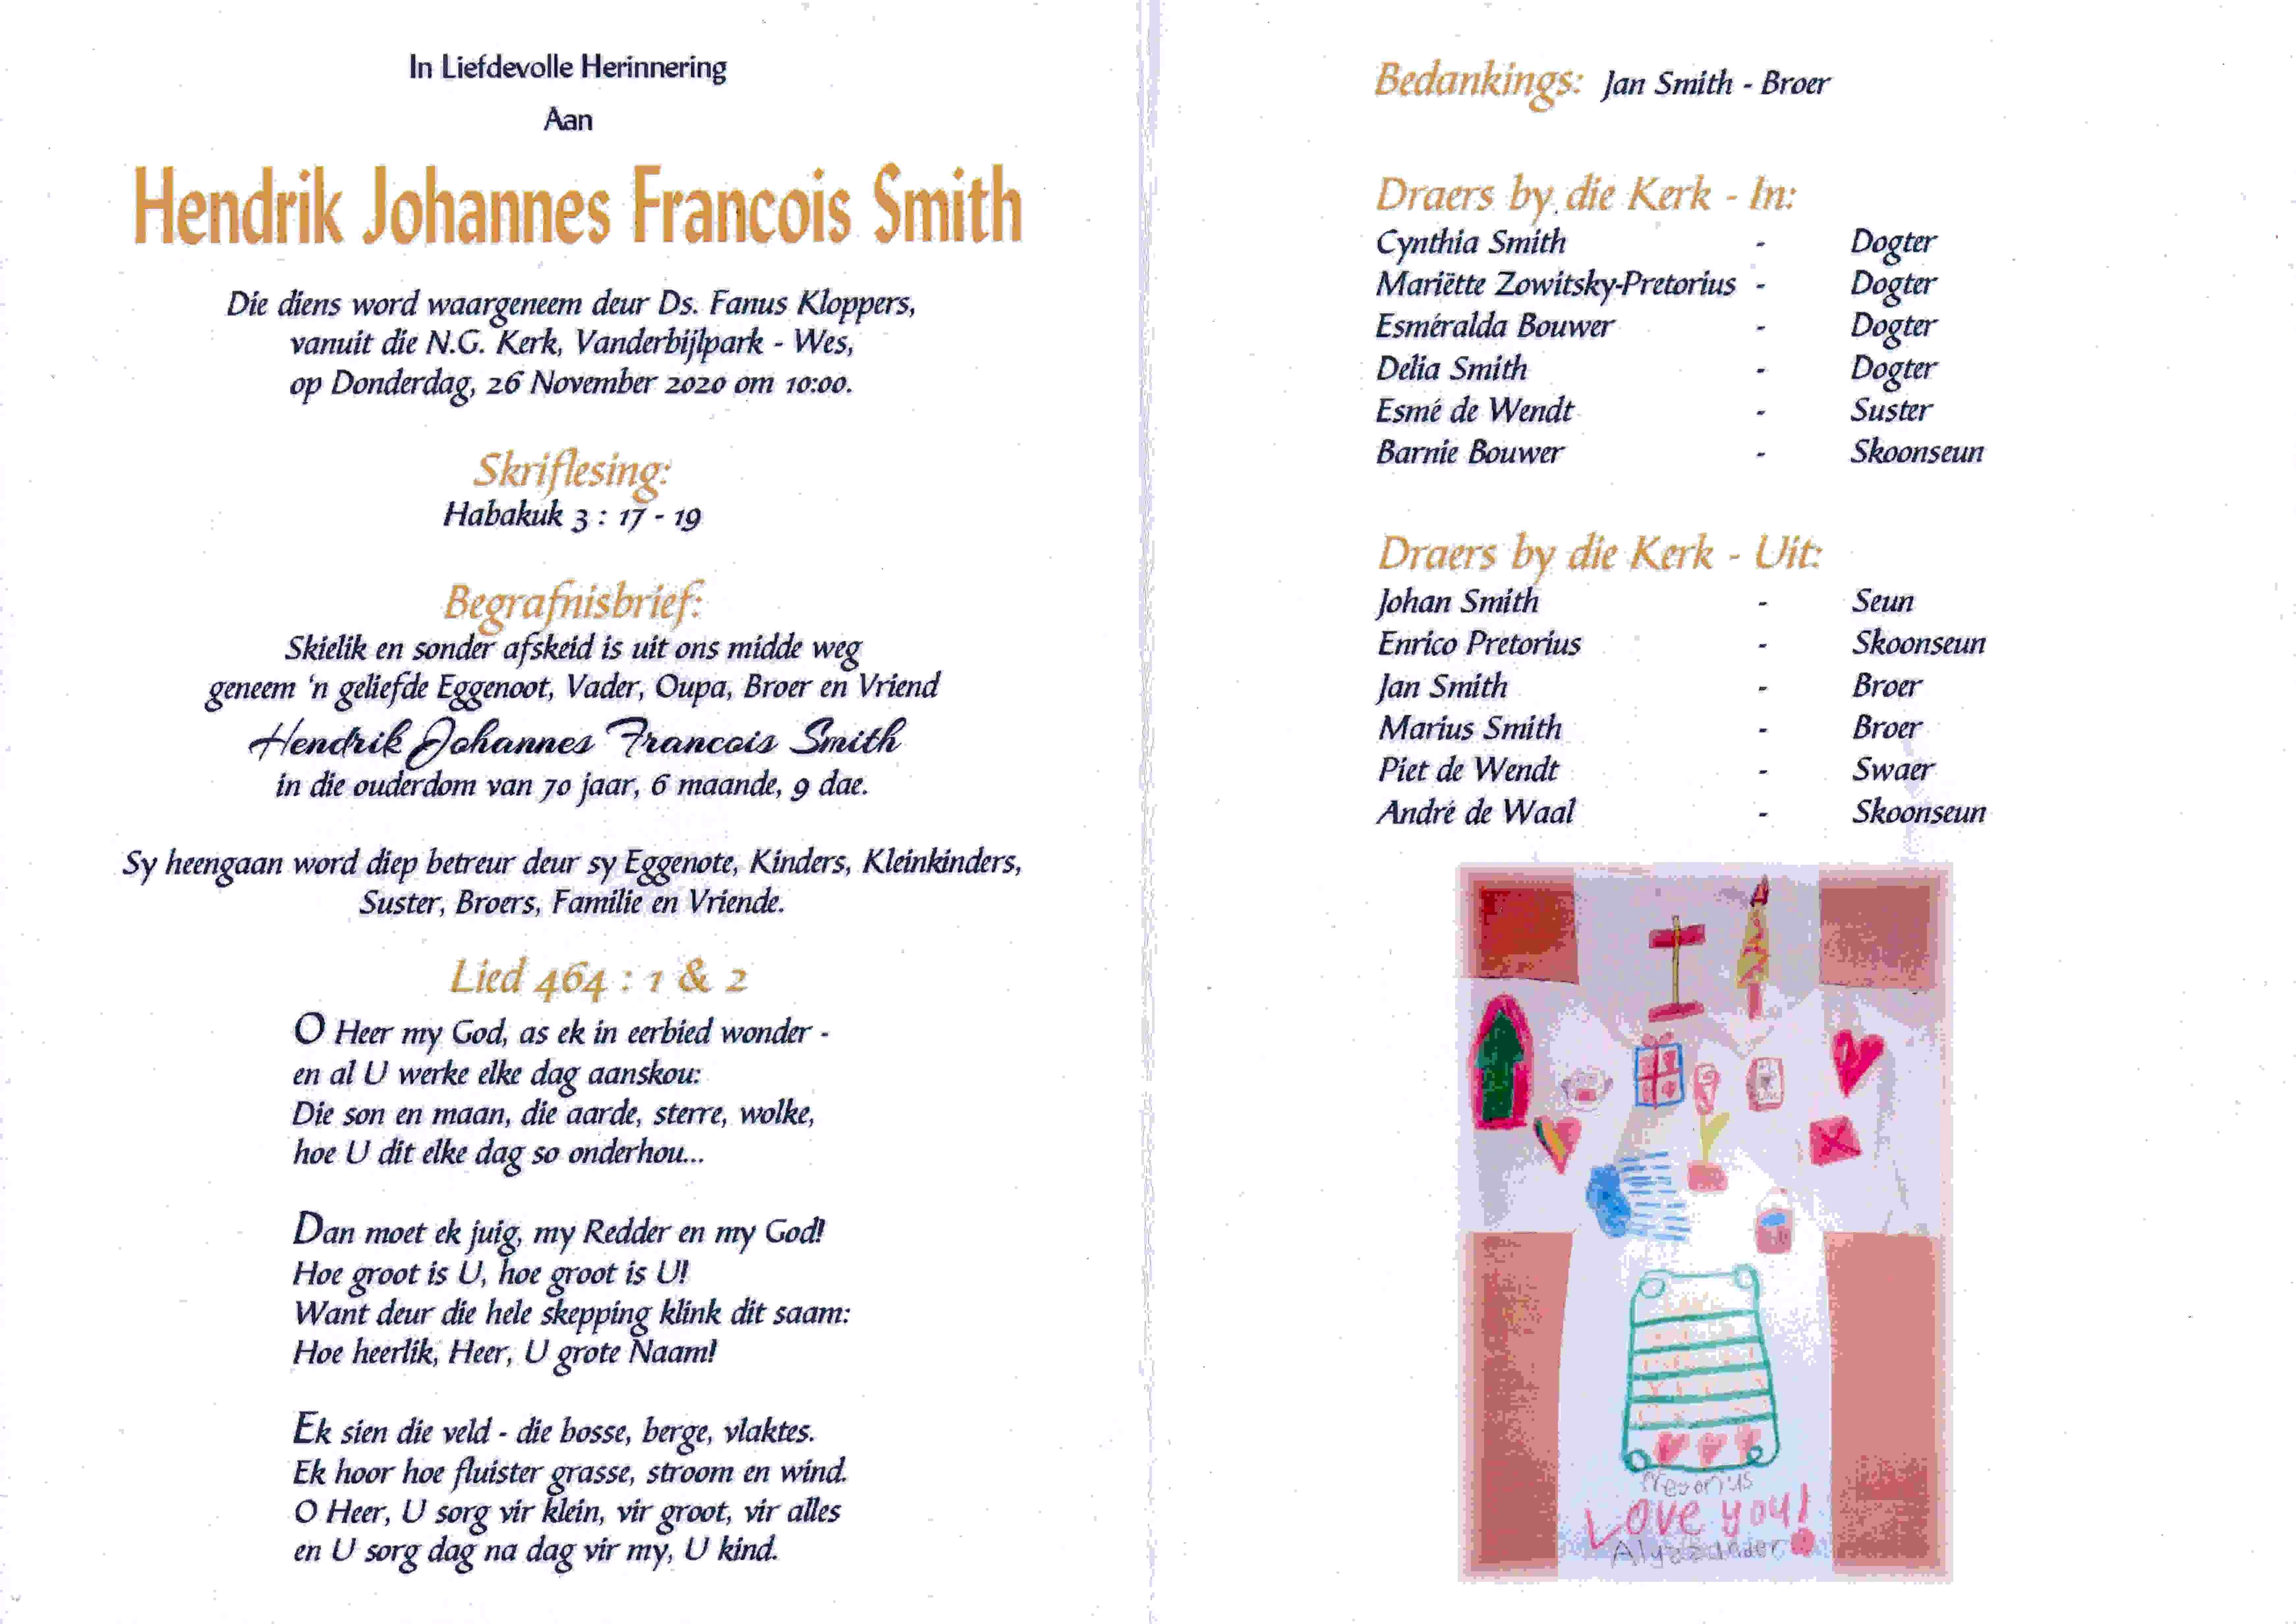 In Liefdevolle Herinnering
Aan
Hendrik Johannes Francois Smith
Die diens word waargeneem deur Ds. Fanus Kloppers,
vanuit die N.G. Kerk, Vanderbijlpark - Wes,
op Donderdag, 26 November 2020 om 10:00.
Skriflesing:
Habakuk 3 : 17 - 19
Begrafnisbrief:
Skielik en sonder afskeid is uit ons midde weg
geneem 'n geliefde Eggenoot, Vader, Oupa, Broer en Vriend
Hendrik Johannes Francois Smith
in die ouderdom van 70 jaar, 6 maande, 9 dae.
Sy heengaan word diep betreur deur sy Eggenote, Kinders, Kleinkinders,
Suster, Broers, Familie en Vriende.
Lied 464 : 1 & 2
O Heer my God, as ek in eerbied wonder -
en al U werke elke dag aanskou:
Die son en maan, die aarde, sterre, wolke,
hoe U dit elke dag so onderhou...
Dan moet ek juig, my Redder en my God!
Hoe groot is U, hoe groot is U!
Want deur die hele skepping klink dit saam:
Hoe heerlik, Heer, U grote Naam!
Ek sien die veld - die bosse, berge, vlaktes.
Ek hoor hoe fluister grasse, stroom en wind.
O Heer, U sorg vir klein, vir groot, vir alles
en U sorg dag na dag vir my, U kind.
Bedankings: Jan Smith - Broer
Draers by die Kerk - In:
Cynthia Smith - Dogter
Mariëtte Zowitsky-Pretorius - Dogter
Esméralda Bouwer - Dogter
Delia Smith - Dogter
Esmé de Wendt - Suster
Barnie Bouwer - Skoonseun
Draers by die Kerk - Uit:
Johan Smith - Seun
Enrico Pretorius - Skoonseun
Jan Smith - Broer
Marius Smith - Broer
Piet de Wendt - Swaer
André de Waal - Skoonseun
Love you!